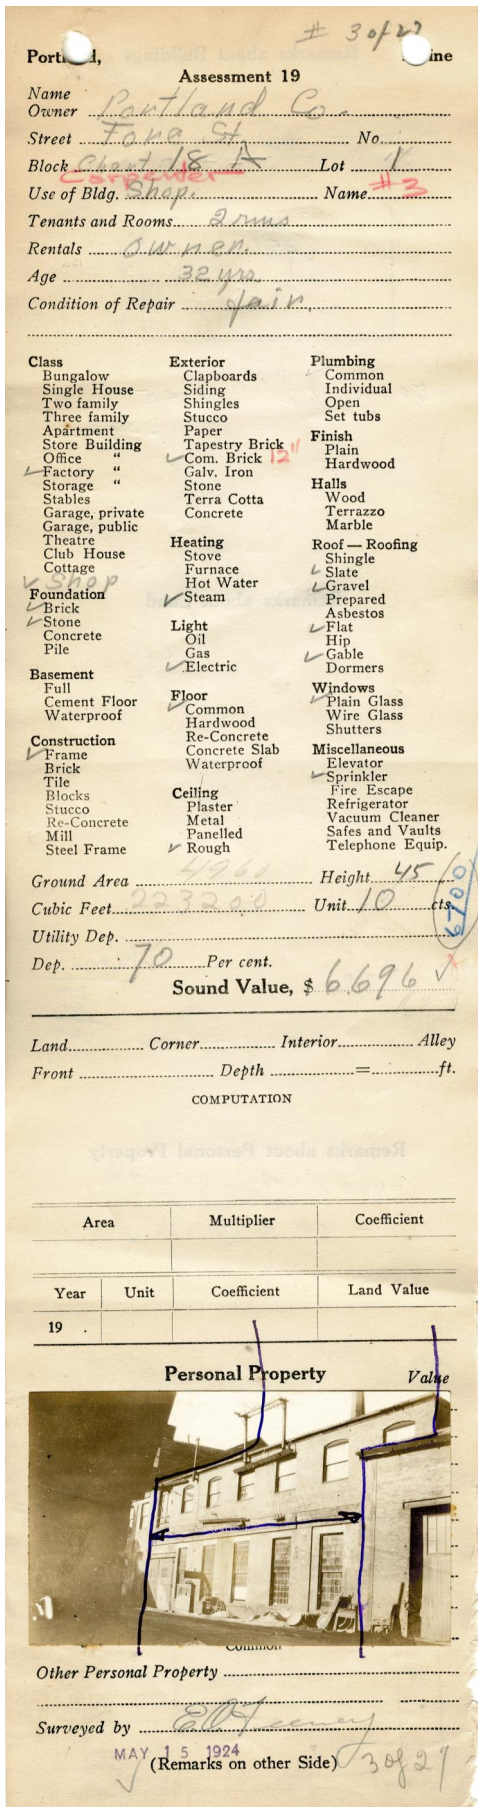 # 3 of 27
Portland, Maine
Assessment 19
Name
Owner Portland Co.
Street Fore St. No.
Block Chart 18 A Lot 1
Carpenter
Use of Bldg. Shop. Name #3
Tenants and Rooms 2 rms
Rentals owner.
Age 32 yrs.
Condition of Repair fair.
Class
Bungalow
Single House
Two family
Three family
Apartment
Store Building
Office "
✓ Factory "
Storage "
Stables
Garage, private
Garage, public
Theatre
Club House
Cottage
✓ Shop
Foundation
✓ Brick
✓ Stone
Concrete
Pile
Basement
Full
Cement Floor
Waterproof
Construction
✓ Frame
Brick
Tile
Blocks
Stucco
Re-Concrete
Mill
Steel Frame
Exterior
Clapboards
Siding
Shingles
Stucco
Paper
Tapestry Brick
✓ Com. Brick 12"
Galv. Iron
Stone
Terra Cotta
Concrete
Heating
Stove
Furnace
Hot Water
✓ Steam
Light
Oil
Gas
✓ Electric
Floor
✓ Common
Hardwood
Re-Concrete
Concrete Slab
Waterproof
Ceiling
Plaster
Metal
Panelled
✓ Rough
Plumbing
✓ Common
Individual
Open
Set tubs
Finish
Plain
Hardwood
Halls
Wood
Terrazzo
Marble
Roof — Roofing
Shingle
✓ Slate
✓ Gravel
Prepared
Asbestos
✓ Flat
Hip
✓ Gable
Dormers
Windows
✓ Plain Glass
Wire Glass
Shutters
Miscellaneous
Elevator
✓ Sprinkler
Fire Escape
Refrigerator
Vacuum Cleaner
Safes and Vaults
Telephone Equip.
Ground Area 4960 Height 45
Cubic Feet 223200 Unit 10 cts.
6700
Utility Dep.
Dep. 70 Per cent.
Sound Value, $ 6696 ✓
Land Corner Interior Alley
Front Depth = ft.
COMPUTATION
Area Multiplier Coefficient
Year Unit Coefficient Land Value
19 .
Personal Property Value
Common
Other Personal Property
Surveyed by E O Feeney
MAY 15 1924
(Remarks on other Side) 3 of 27